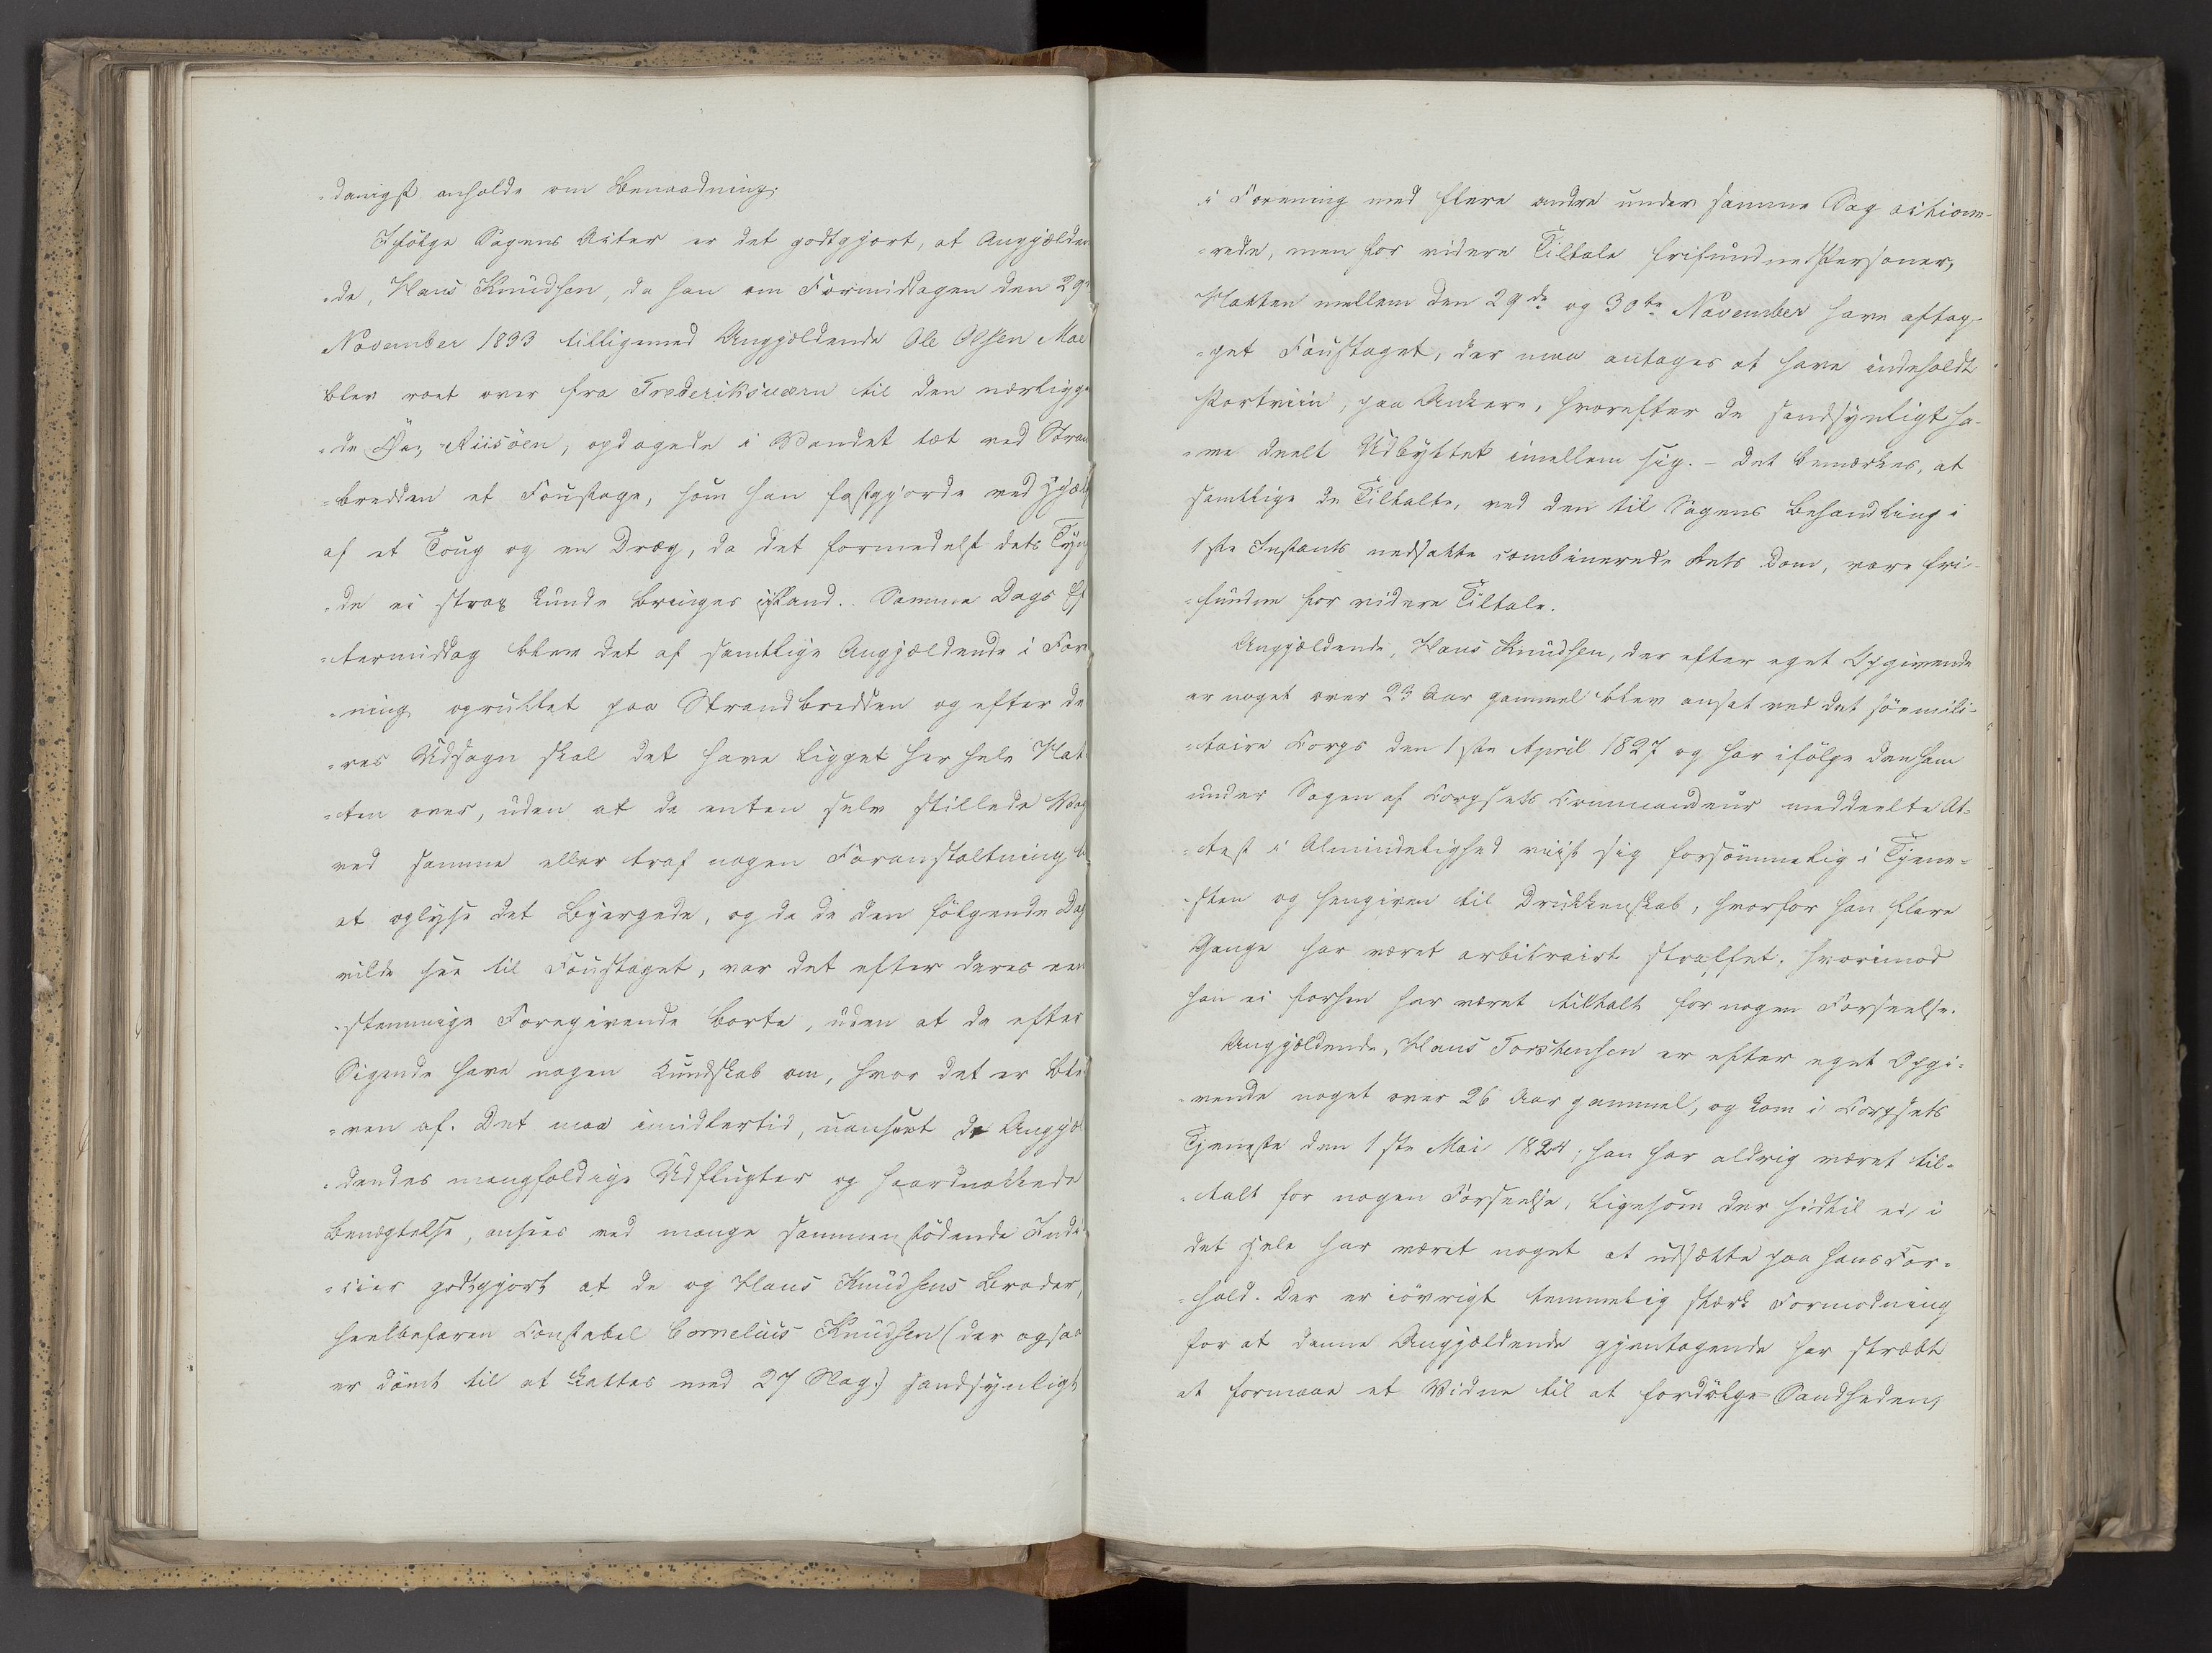 -danigst anholde om Benaadning.
Ifølge Sagens Acter er det godtgjort, at Angjælden
-de, Hans Knudsen, da han om Formiddagen den 29
November 1833 tilligemed Angjældende Ole Olsen Moe
blev roet over fra Frederiksværn til den nærligge
-de Øe, Riisöen, opdagede i Vandet tæt ved Stran
-bredden et Foustage, som han fastgjorde ved Hjælp
af et Toug og en Dræg, da det formedelst dets Tyng
-de ei strax kunde bringes iland. Samme Dags Ef
-termiddag blev det af samtlige Angjældende i For
-ning oprullet paa Strandbredden og efter de
-res Udsagn skal det have ligget her hele Nat
-ten over, uden at de enten selv stillede Vag
ved samme eller traf nogen Foranstaltning
at oplyse det Bjergede, og da de den følgende Dag
vilde see til Foustaget, var det efter deres een
-stemmige Foregivende borte, uden at de efter
Sigende have nogen Kundskab om, hvor det er ble
-ven af. Det maa imidlertid, uanseet de Angjæl
-dendes mangfoldige Udflugter og haardnakkede
Benægtelse, ansees ved mange sammenstødende Indi
-cier godtgjort at de og Hans Knudsens Broder,
heelbefaren Constabel Cornelius Knudsen (der ogsaa
er dömt til at kattes med 27 Slag.) sandsynligt
i Forening med flere andre under samme Sag actione-
-rede, men for videre Tiltale frifundne Personer,
Natten mellem den 29de og 30te November have aftap-
-pet Foustaget, der maa antages at have indeholdt
Portviin, paa Ankere, hvorefter de sandsynligt ha-
-ve deelt Udbyttet imellem sig. - Det bemærkes, at
samtlige de Tiltalte, ved den til Sagens Behandling i
1ste Instants nedsatte combinerede Rets Dom, vare fri-
-fundne for videre Tiltale.
Angjældende, Hans Knudsen, der efter eget Opgivende
er noget over 23 Aar gammel blev ansat ved det söemili-
-taire Corps den 1ste April 1827 og har ifölge den ham
under Sagen af Corpsets Commandeur meddeelte At-
-test i Almindelighed viist sig forsömmelig i Tjene-
-sten og hengiven til Drukkenskab, hvorfor han flere
Gange har været arbitrairt straffet, hvorimod
han ei forhen har været tiltalt for nogen Forseelse.
Angjældende, Hans Torstensen er efter eget Opgi-
-vende noget over 26 Aar gammel, og kom i Corpsets
Tjeneste den 1ste Mai 1824; han har aldrig været til-
-talt for nogen Forseelse, ligesom der hidtil ei, i
det Hele har været noget at udsætte paa hans For-
-hold. Der er iövrigt temmelig stærk Formodning
for at denne Angjældende gjentagende har stræbt
at formaae et Vidne til at fordölge Sandheden,